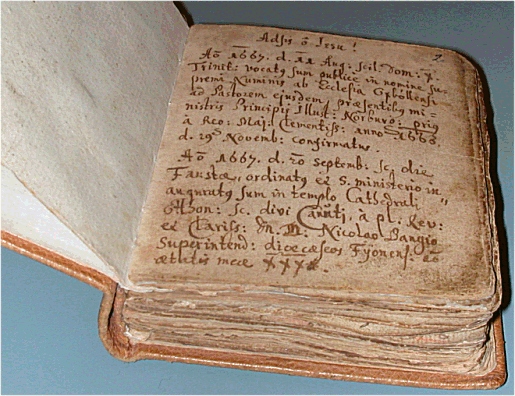 Adsis ô Jesu!
Aõ 1667. d. 11 Aug: scil. Dom: 7.
Trinit: vocatus sum publice in nomine su-
premi Numinis ab Ecclesia
ad Pastorem ejusdem, præsentibus mi-
nistris Principis Illust: Norburg: prius
à Reg: Maj: Clementiss: anno 1666
d. 29 Novemb: confirmatus.
Aõ 1667. d. 20 Septemb: sc, die
Fausta, ordinatus et S. ministerio in
auguratus sum in templo Cathedrali
Othon: sc. divi Canuti, à pl. Rev:
et Clariss: Dn. D. Nicolao Bangio
Superintend: diœcæseos Fÿonens:
ætatis meæ